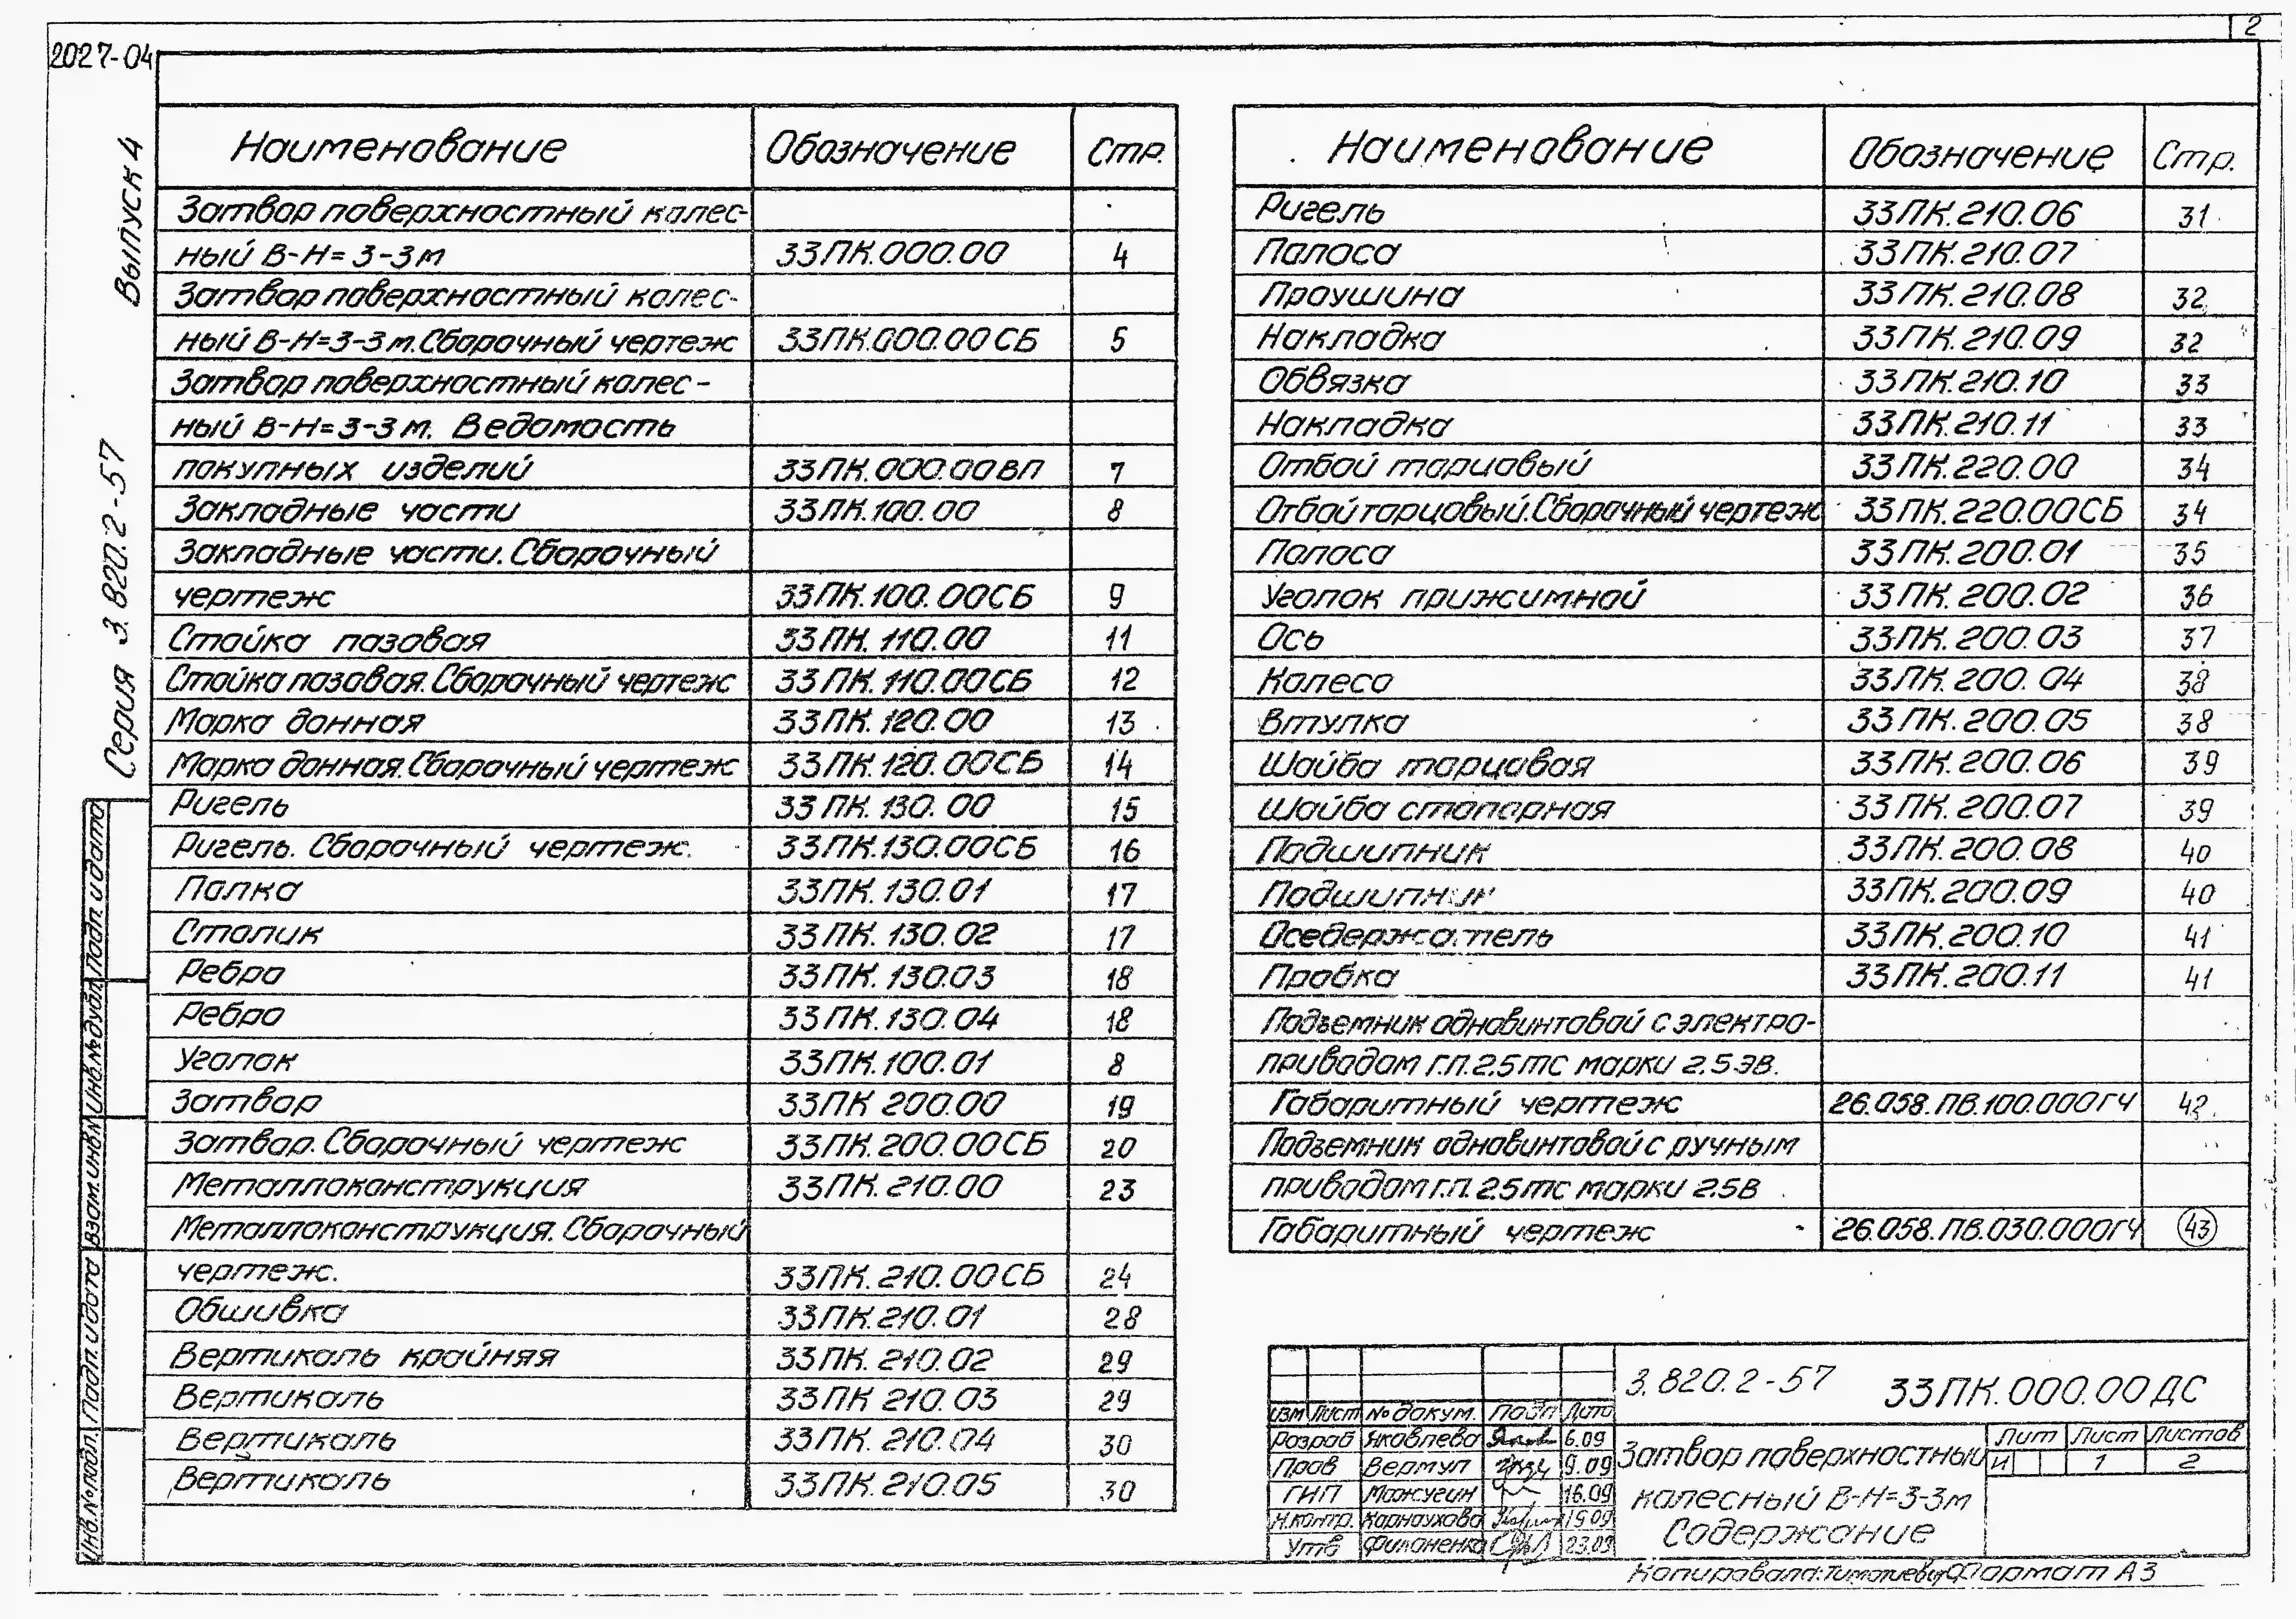 2
2027-04
Серия 3.820.2-57 Выпуск 4
Наименование Обозначение Стр.
Затвор поверхностный колес-
ный В-Н=3-3м 33ПК.000.00 4
Затвор поверхностный колес-
ный В-Н=3-3м. Сборочный чертеж 33ПК.000.00СБ 5
Затвор поверхностный колес-
ный В-Н=3-3м. Ведомость
покупных изделий 33ПК.000.00ВП 7
Закладные части 33ПК.100.00 8
Закладные части. Сборочный
чертеж 33ПК.100.00СБ 9
Стойка пазовая 33ПК.110.00 11
Стойка пазовая. Сборочный чертеж 33ПК.110.00СБ 12
Марка донная 33ПК.120.00 13
Марка донная. Сборочный чертеж 33ПК.120.00СБ 14
Ригель 33ПК.130.00 15
Ригель. Сборочный чертеж. 33ПК.130.00СБ 16
Полка 33ПК.130.01 17
Столик 33ПК.130.02 17
Ребро 33ПК.130.03 18
Ребро 33ПК.130.04 18
Уголок 33ПК.100.01 8
Затвор 33ПК 200.00 19
Затвор. Сборочный чертеж 33ПК.200.00СБ 20
Металлоконструкция 33ПК.210.00 23
Металлоконструкция. Сборочный
чертеж. 33ПК.210.00СБ 24
Обшивка 33ПК.210.01 28
Вертикаль крайняя 33ПК.210.02 29
Вертикаль 33ПК 210.03 29
Вертикаль 33ПК.210.04 30
Вертикаль 33ПК.210.05 30
Наименование Обозначение Стр.
Ригель 33ПК.210.06 31
Полоса 33ПК.210.07
Проушина 33ПК.210.08 32
Накладка 33ПК.210.09 32
Обвязка 33ПК.210.10 33
Накладка 33ПК.210.11 33
Отбой торцовый 33ПК.220.00 34
Отбой торцовый. Сборочный чертеж 33ПК.220.00СБ 34
Полоса 33ПК.200.01 35
Уголок прижимной 33ПК.200.02 36
Ось 33ПК.200.03 37
Колесо 33ПК.200.04 38
Втулка 33ПК.200.05 38
Шайба торцовая 33ПК.200.06 39
Шайба стопорная 33ПК.200.07 39
Подшипник 33ПК.200.08 40
Подшипник 33ПК.200.09 40
Оседержатель 33ПК.200.10 41
Пробка 33ПК.200.11 41
Подъемник одновинтовой с электро-
приводом Г.П.2.5тс марки 2.5ЭВ.
Габаритный чертеж 26.058.ПВ.100.000ГЧ 42
Подъемник одновинтовой с ручным
приводом г.п. 2.5тс марки 2.5В
Габаритный чертеж 26.058.ПВ.030.000ГЧ 43
Инв.№подл. Подп. и дата Взам.инв.№ Инв.№дубл. Подп. и дата
3.820.2-57 33ПК.000.00ДС
Изм Лист № докум. Подп Дата
Разраб Яковлева 6.09
Пров Вермул 9.09
ГИП Можугин 16.09
Н.контр. Карнаухова 15.09
Утв Филоненко 23.09
Затвор поверхностный
колесный В-Н=3-3м
Содержание
Лит Лист Листов
И 1 2
Копировала: Формат А3